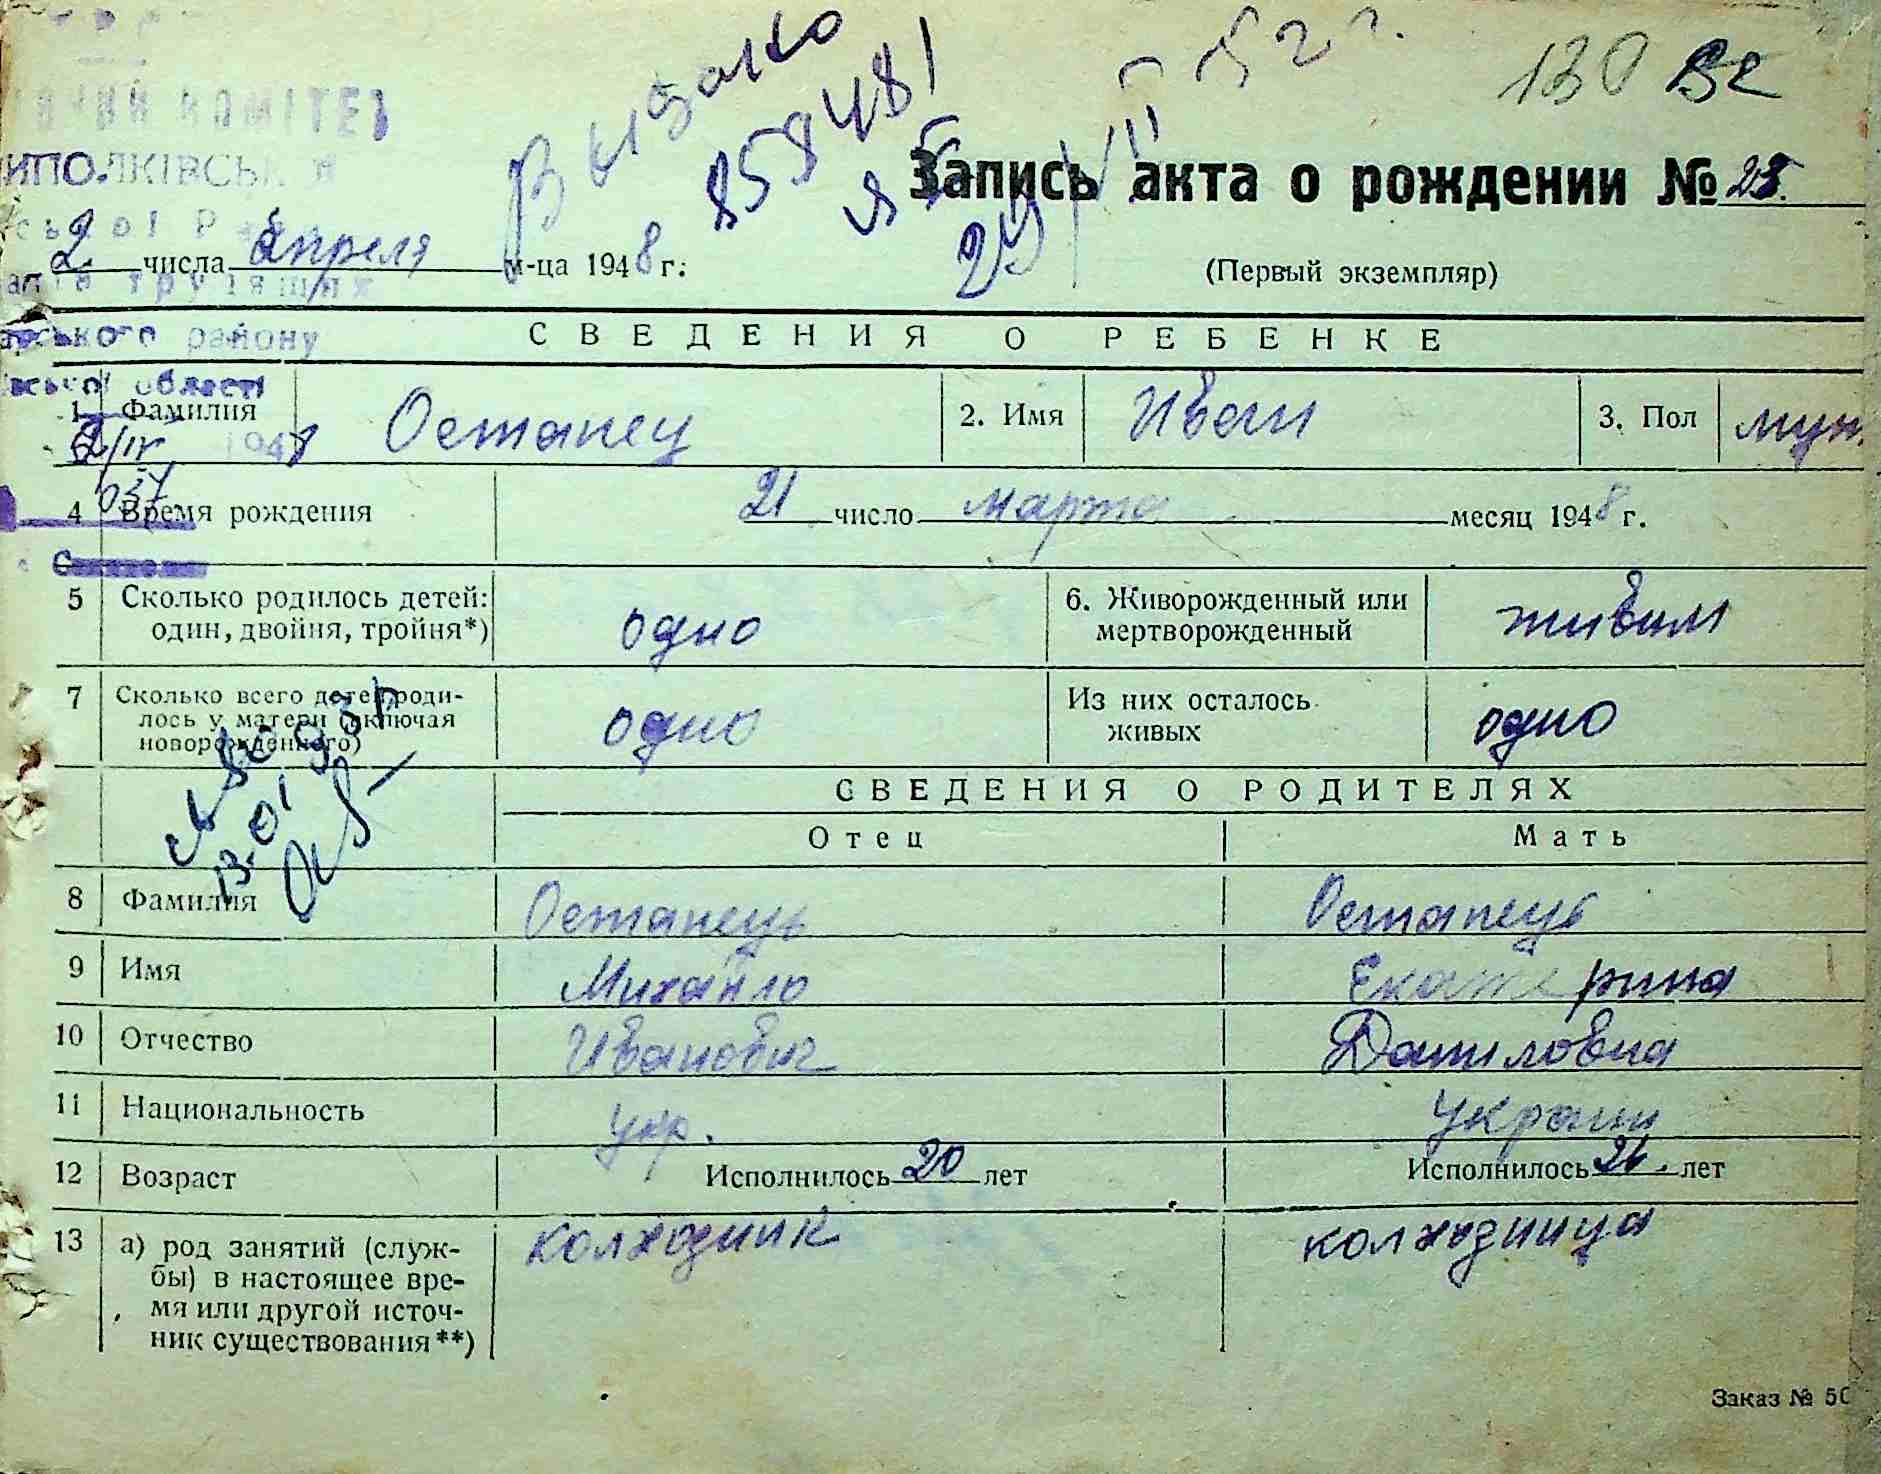 130
КОМІТЕТ
Запись акта о рождении № 25.
2. числа Апреля м-ца 1948 г.
(Первый экземпляр)
району
СВЕДЕНИЯ О РЕБЕНКЕ
області
1 Фамилия Остапец 2. Имя Иван 3. Пол муж.
1948
4 Время рождения 21 число марта месяц 1948 г.
5 Сколько родилось детей: один, двойня, тройня*) одно 6. Живорожденный или мертворожденный живим
7 Сколько всего детей родилось у матери (включая новорожденного) одно Из них осталось живых одно
СВЕДЕНИЯ О РОДИТЕЛЯХ
Отец Мать
8 Фамилия Остапець Остапець
9 Имя Михайло Екатерина
10 Отчество Иванович Даниловна
11 Национальность укр. украин
12 Возраст Исполнилось 20 лет Исполнилось лет
13 а) род занятий (служ-
бы) в настоящее вре-
мя или другой источ-
ник существования**)
колхозник колхозница
Заказ № 50